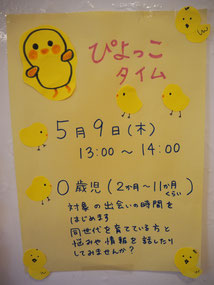 ぴよっこ
タイム
5月9日(木)
13:00~14:00
0歳児(2か月~11か月くらい)
対象の出会いの時間を
はじめます
同世代を育てている方と
悩みや情報を話したり
してみませんか?